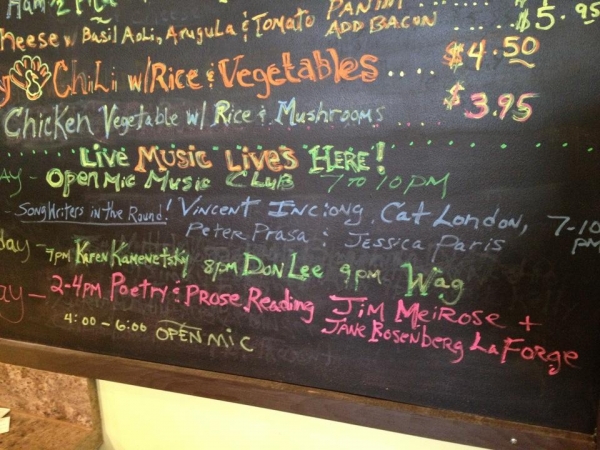 Ham
Panini
$5.95
heese w/ Basil Aoli, Arugula & Tomato
ADD BACON
y Chili w/Rice & Vegetables.... $4.50
Chicken Vegetable w/ Rice & Mushrooms $3.95
Live Music Lives Here!
AY - Open Mic Music Club 7 to 10 PM
- Songwriters in the Round! Vincent Inciong, Cat London, 7-10 pm
Peter Prasa & Jessica Paris
day - 7pm Karen Kamenetsky 8pm Don Lee 9pm Wag
ay - 2-4pm Poetry & Prose Reading Jim Meirose +
Jane Rosenberg LaForge
4:00 - 6:00 OPEN MIC